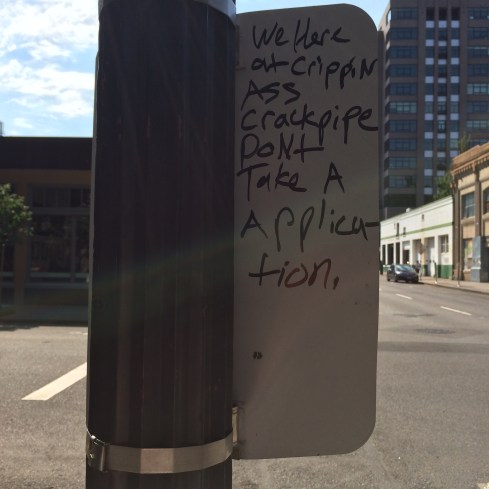 We Here
at CrippiN
ASS
Crackpipe
DONt
Take A
Applica-
tion.